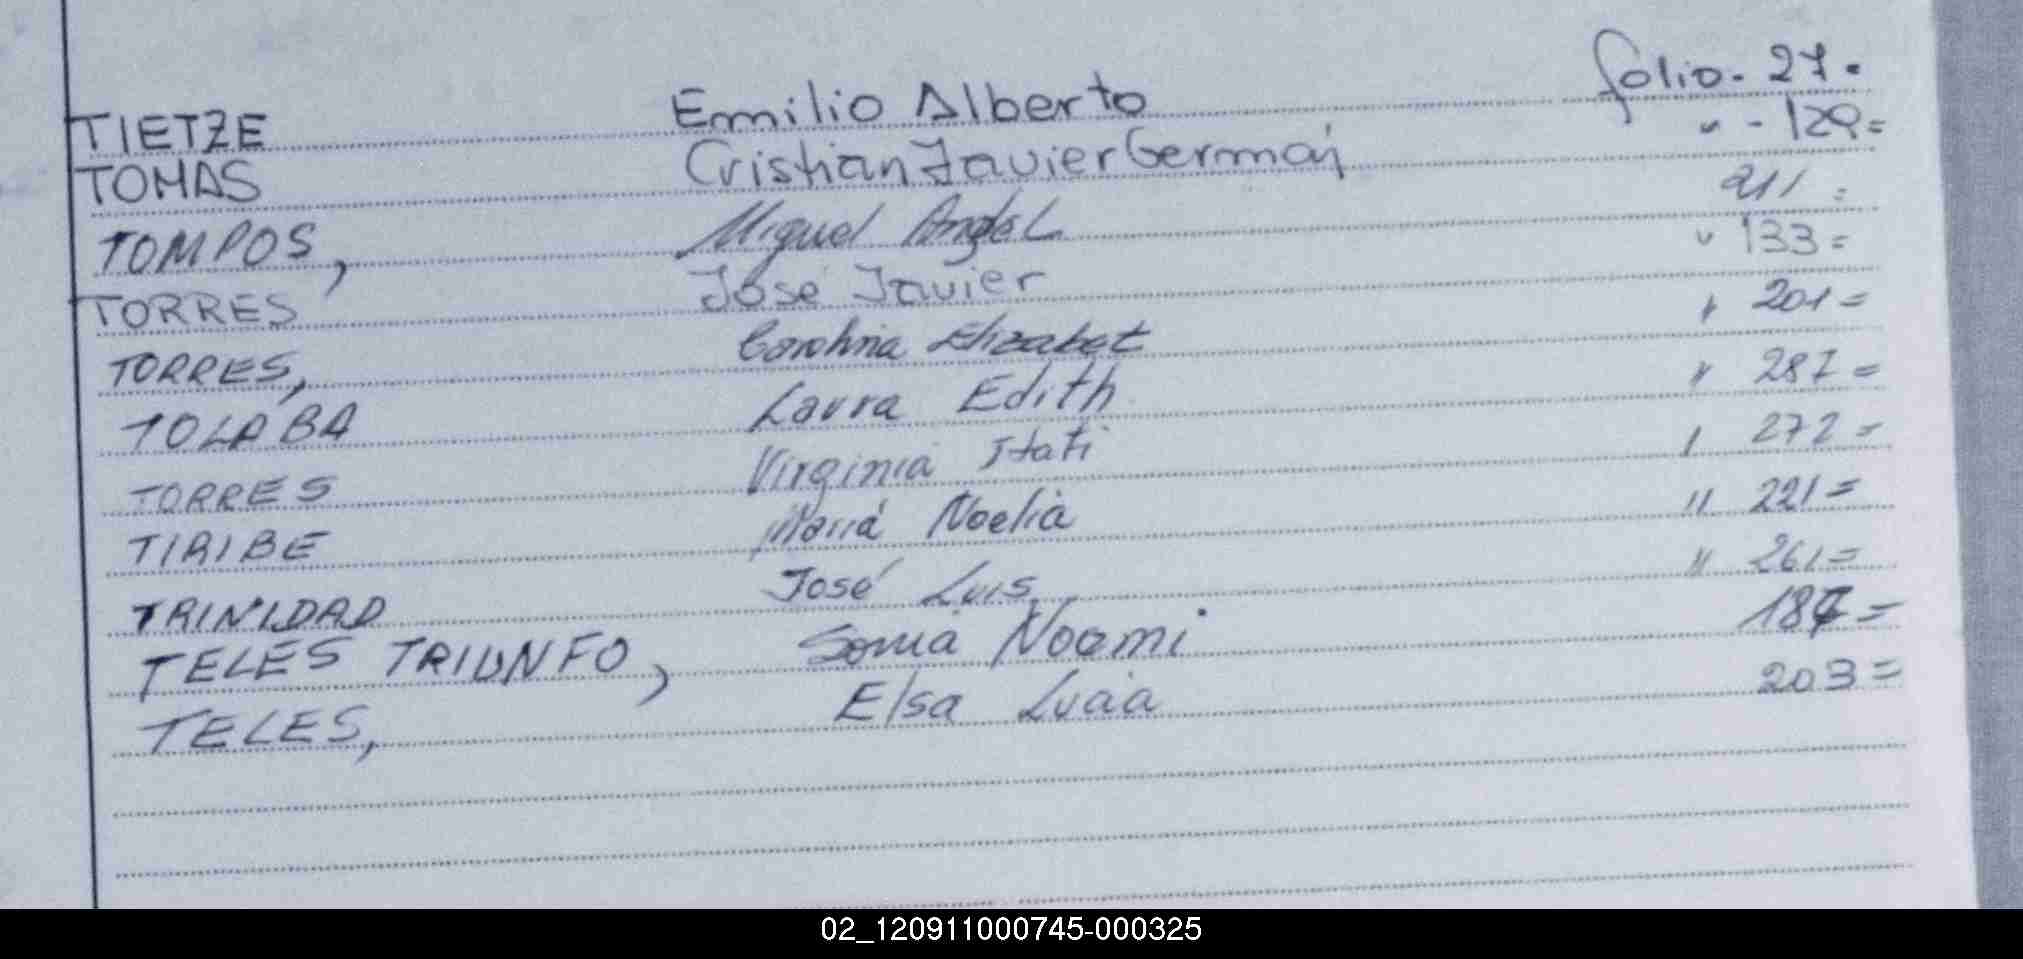 TIETZE Emilio Alberto folio. 27.
TOMAS Cristian Javier Germán " - 129=
TOMPOS, Miguel Angel 211 =
TORRES José Javier " 133=
TORRES, Carolina Elizabet " 201=
TOLABA Laura Edith " 287=
TORRES Virginia Itati " 272=
TIRIBE María Noelia " 221=
TRINIDAD José Luis " 261=
TELES TRIUNFO, Sonia Noemi =
TELES, Elsa Lucia 203=
02_120911000745-000325